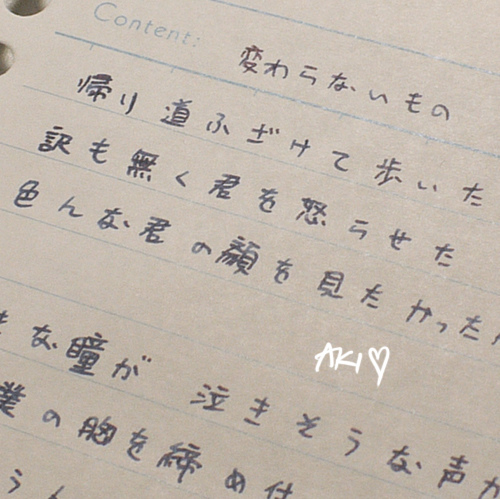 Content:
変わらないもの
帰り道ふざけて歩いた
訳も無く君を怒らせた
色んな君の顔を見たかった
AKI♡
な瞳が 泣きそうな声が
僕の胸を締め付